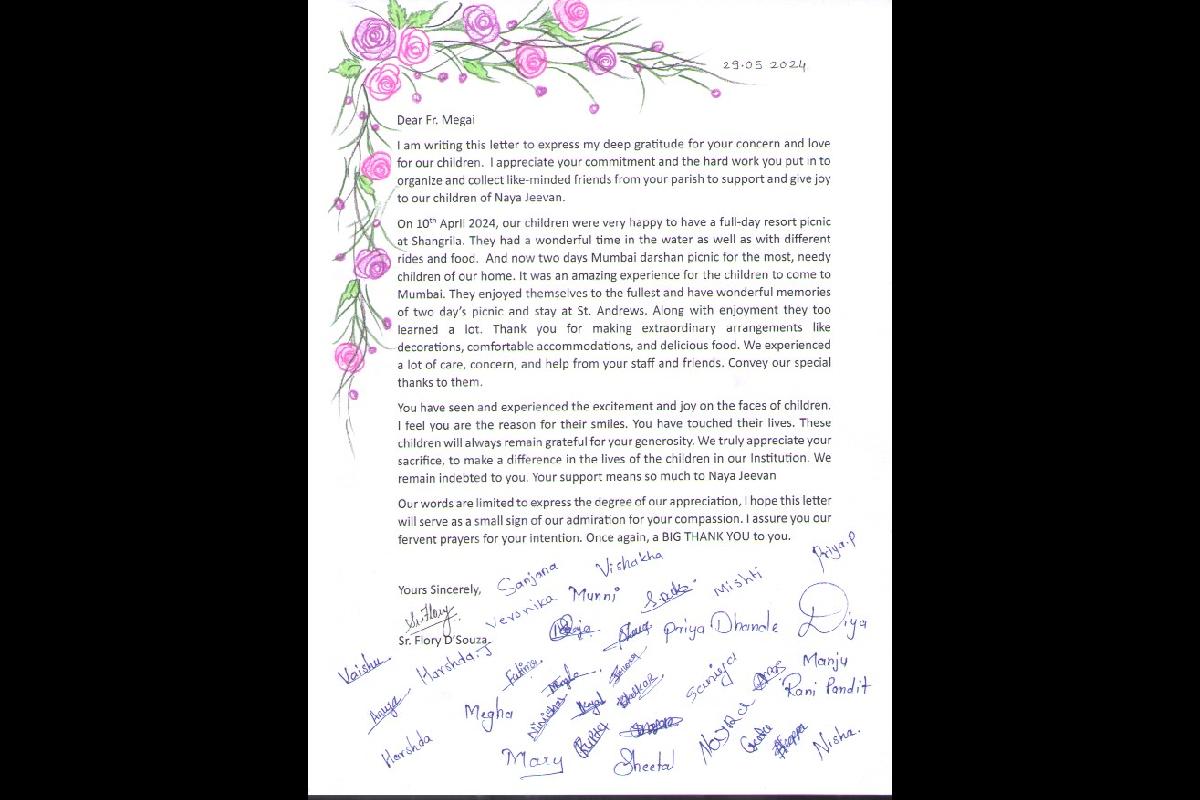 29.05 2024
Dear Fr. Megai
I am writing this letter to express my deep gratitude for your concern and love
for our children. I appreciate your commitment and the hard work you put in to
organize and collect like-minded friends from your parish to support and give joy
to our children of Naya Jeevan.
On 10th April 2024, our children were very happy to have a full-day resort picnic
at Shangrila. They had a wonderful time in the water as well as with different
rides and food. And now two days Mumbai darshan picnic for the most, needy
children of our home. It was an amazing experience for the children to come to
Mumbai. They enjoyed themselves to the fullest and have wonderful memories
of two day's picnic and stay at St. Andrews. Along with enjoyment they too
learned a lot. Thank you for making extraordinary arrangements like
decorations, comfortable accommodations, and delicious food. We experienced
a lot of care, concern, and help from your staff and friends. Convey our special
thanks to them.
You have seen and experienced the excitement and joy on the faces of children.
I feel you are the reason for their smiles. You have touched their lives. These
children will always remain grateful for your generosity. We truly appreciate your
sacrifice, to make a difference in the lives of the children in our Institution. We
remain indebted to you. Your support means so much to Naya Jeevan
Our words are limited to express the degree of our appreciation, I hope this letter
will serve as a small sign of our admiration for your compassion. I assure you our
fervent prayers for your intention. Once again, a BIG THANK YOU to you.
Priya.P
Sanjana Vishakha
Yours Sincerely,
Veronika Munni Mishti
Sr. Flory
Priya Dhande Diya
Sr. Flory D'Souza
Vaishu Harshda.J
Manju
Rani Pandit
Anuja Megha
Harshda
Mary Sheetal Nisha.